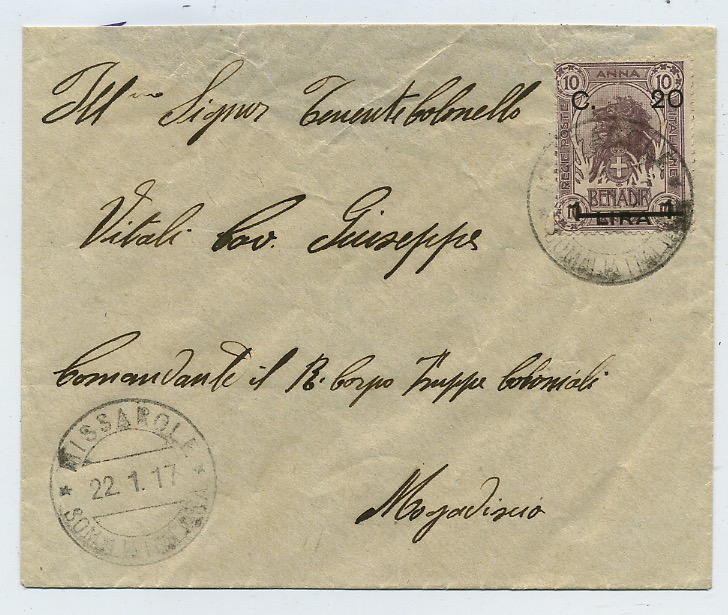 10 ANNA 10
C. 20
REGIE POSTE ITALIANE
BENADIR
1 LIRA 1
SOMALIA ITALIANA
Ill<sup>mo</sup> Signor Tenente Colonello
Vitali Cav. Giuseppe
Comandante il R. Corpo Truppe Coloniali
Mogadiscio
MISSAROLE
22.1.17
SOMALIA ITALIANA